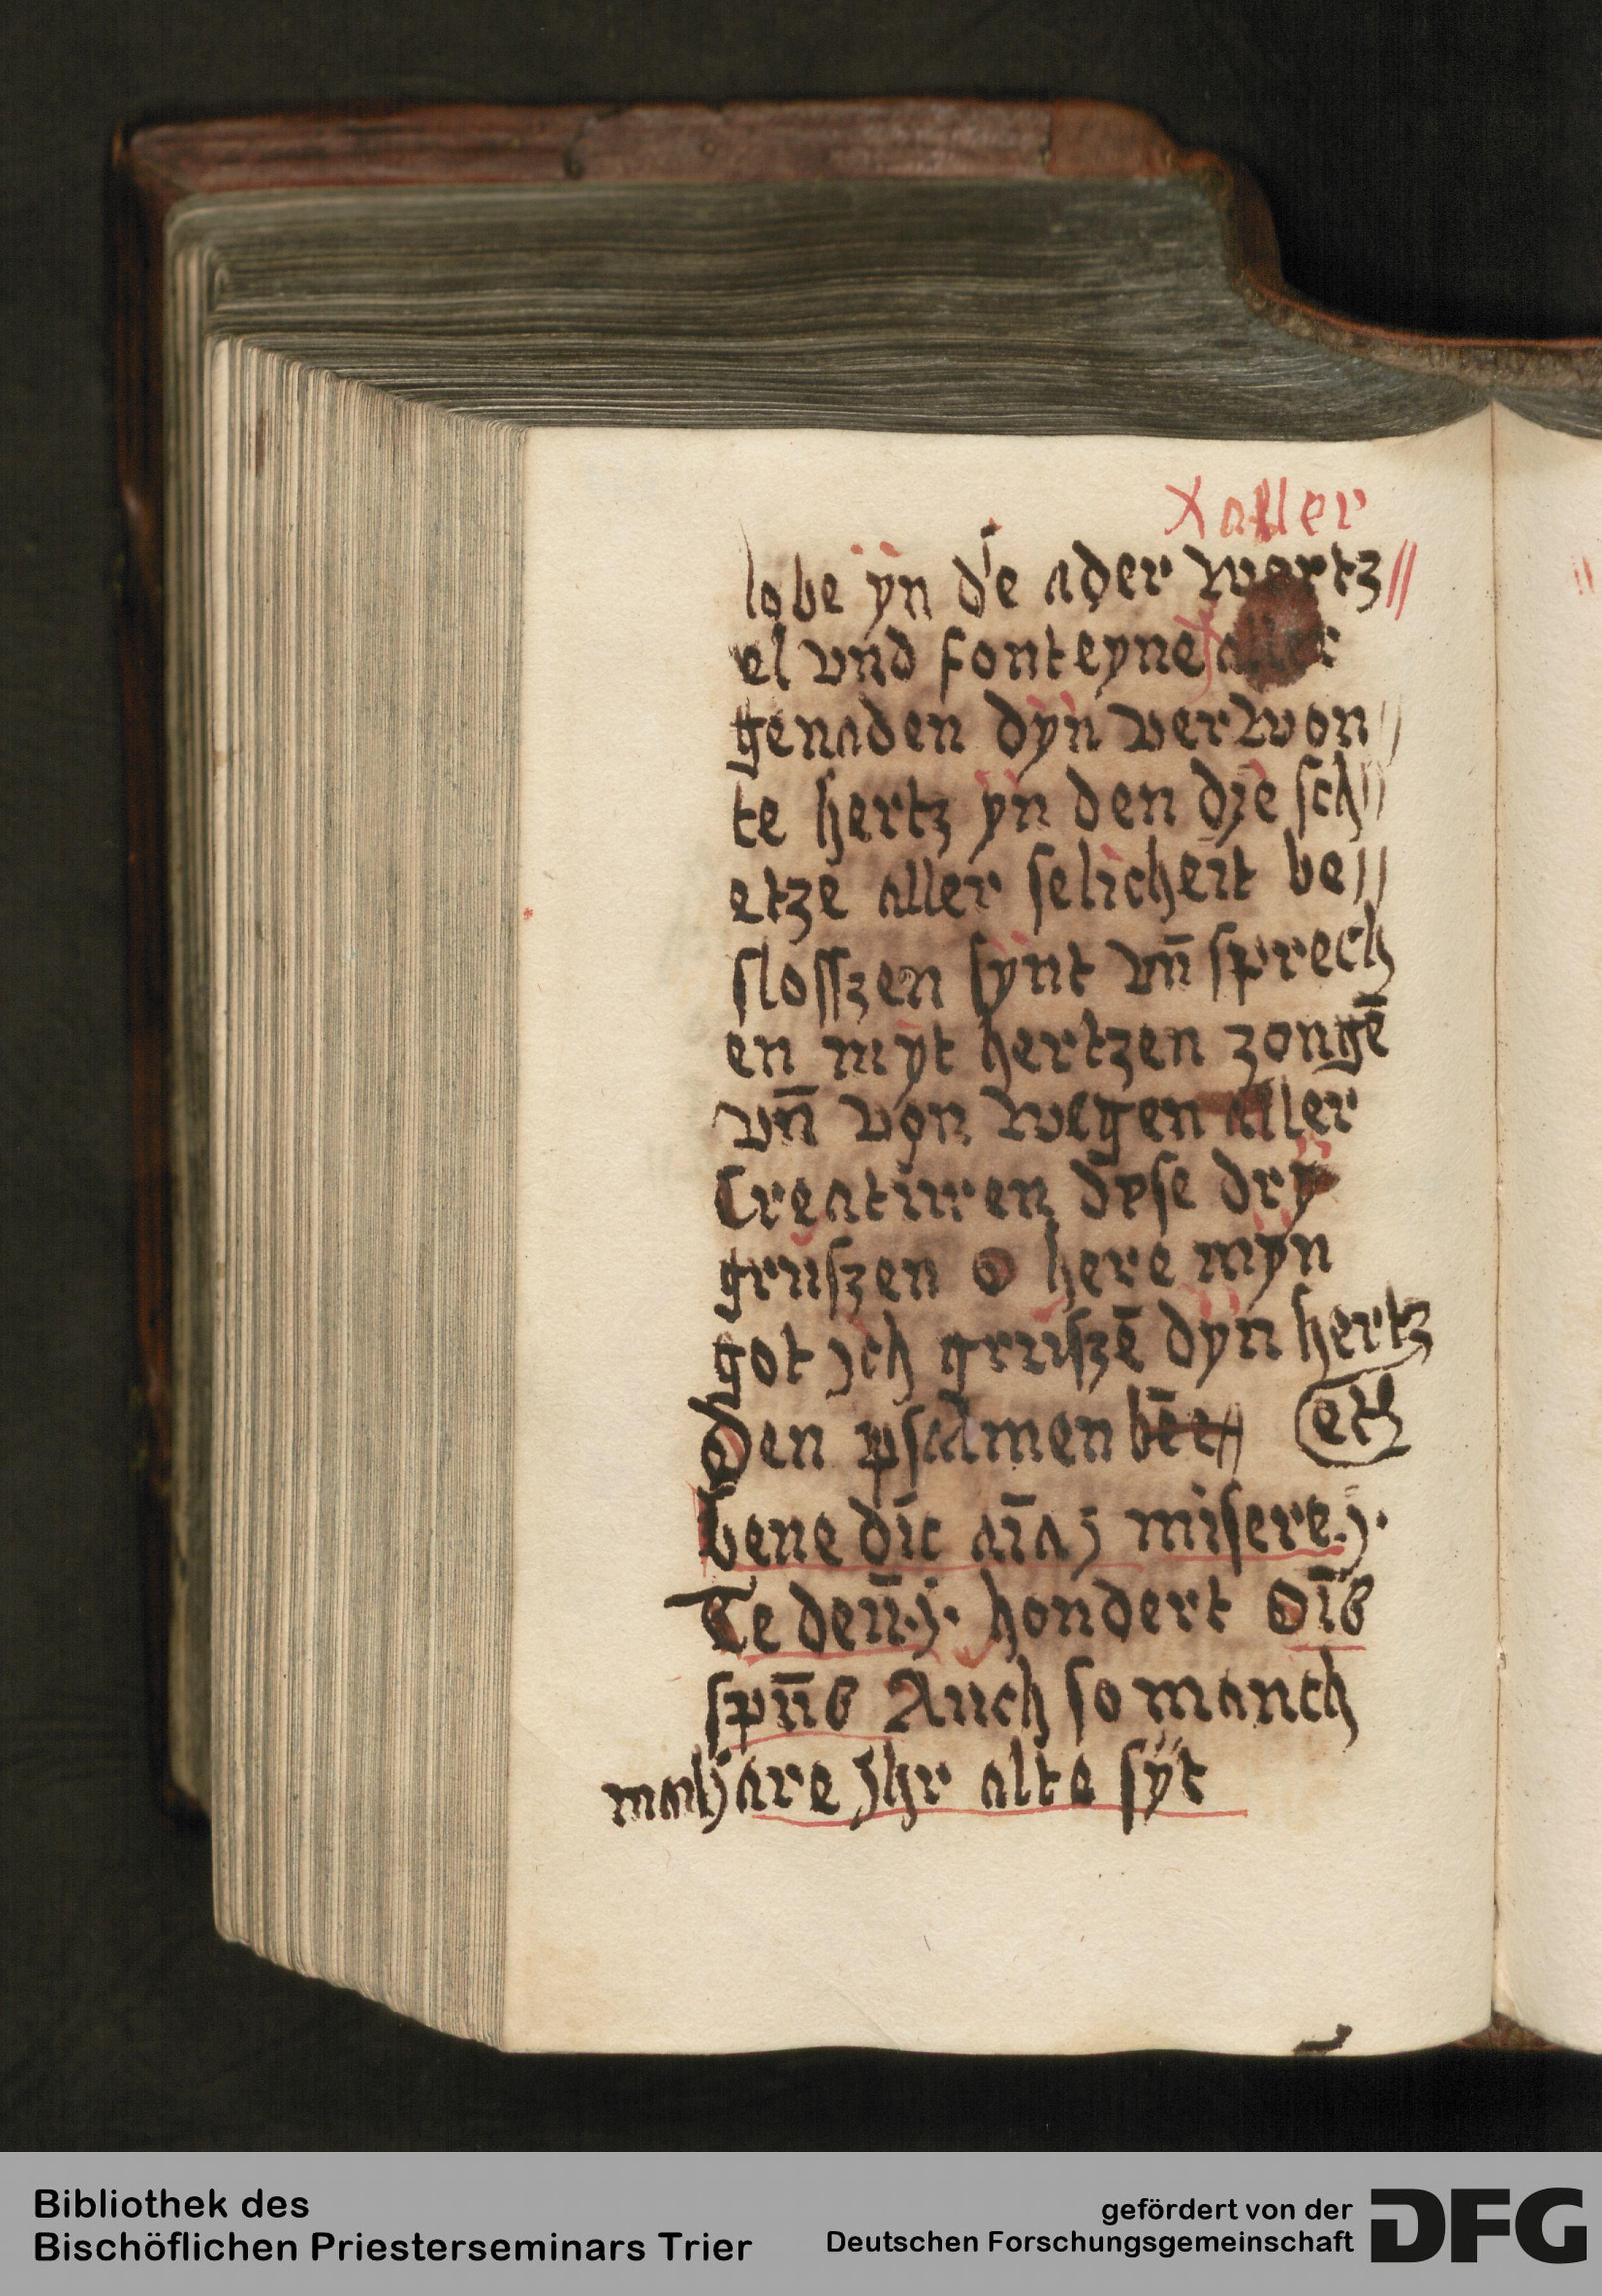 xaller
lobe yn de ader wortz //
el vnd fonteyne x aller
genaden dyn verwon //
te hertz yn den die sch //
etze aller selicheit be //
slosszen synt vn̄ sprech
en myt hertzen zongē
vn̄ von wegen aller
Creaturen dyse dry
gruszen o here myn
got jch gruszē dyn hertz
Den psalmen etz
bene dic aīaz misere j.
Te deū j. hondert Oīb
spūs Auch so manch
jare jhr alte syt
Bibliothek des
Bischöflichen Priesterseminars Trier
gefördert von der
Deutschen Forschungsgemeinschaft
DFG